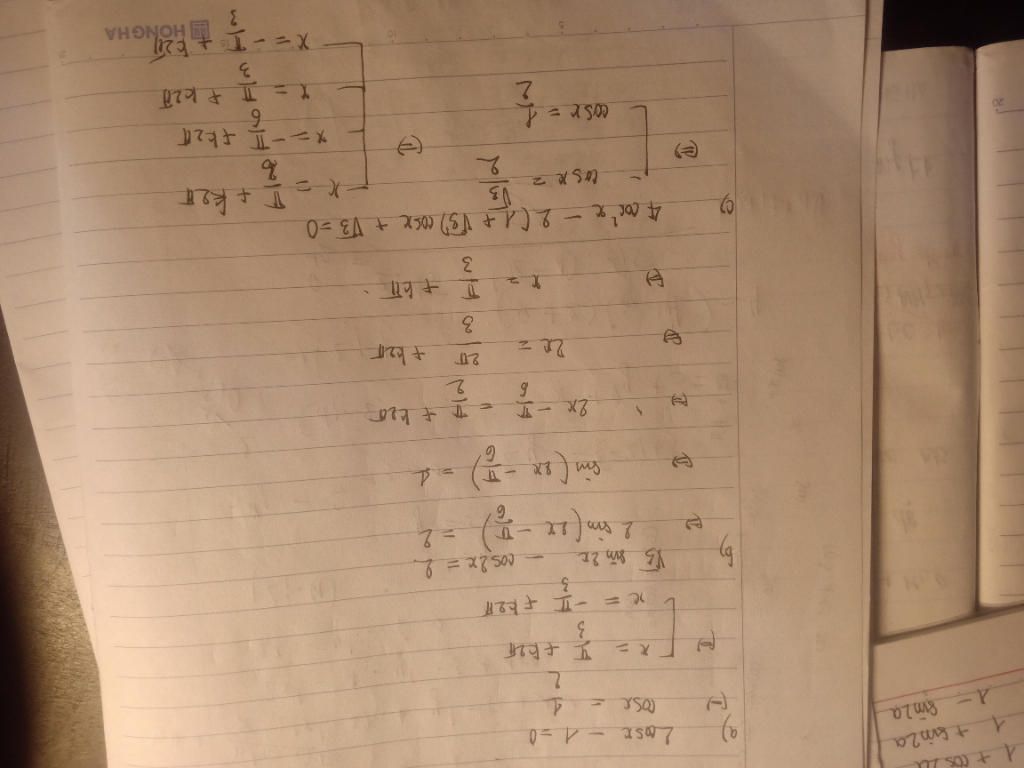 a) 2cosx - 1 = 0
(=) cosx = 1/2
(=) [ x = π/3 + k2π
x = -π/3 + k2π
b) √3 sin2x - cos2x = 2
(=) 2 sin(2x - π/6) = 2
(=) sin(2x - π/6) = 1
(=) 2x - π/6 = π/2 + k2π
(=) 2x = 2π/3 + k2π
(=) x = π/3 + kπ
c) 4cos²x - 2(1 + √3)cosx + √3 = 0
(=) [ cosx = √3/2 (=) [ x = π/6 + k2π
x = -π/6 + k2π
cosx = 1/2 x = π/3 + k2π
x = -π/3 + k2π
HONG HA
1 + cos2a
1 + sin2a
1 - sin2a